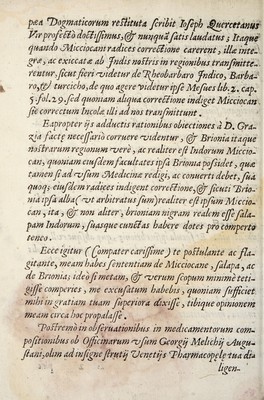 pea Dogmaticorum restituta scribit Ioseph Quercetanus
Vir profectò doctissimus, & nunquã satis laudatus; Itaque
quando Micciocan radices correctione carerent, illæ inte-
græ, ac exiccatæ ab Indis nostris in regionibus transmitte-
rentur, sicut fieri videtur de Rheobarbaro Indico, Barba-
ro, & turcicho, de quo agere videtur ipse Mesues lib. 2. cap.
5. fol. 29. sed quoniam aliqua correctione indiget Micciocan
sic correctum Incolæ illi ad nos transmittunt.
Eapropter ijs adductis rationibus obiectiones à D. Gra-
zia factæ necessariò corruere videntur, & Brionia itaque
nostrarum regionum verè, ac realiter est Indorum Miccio-
can, quoniam eiusdem facultates ipsa Brionia possidet, quæ
tamen si ad vsum Medicinæ redigi, ac conuerti debet, sua
quoq; eiusdem radices indigent correctione, & sicuti Brio-
nia ipsa alba (vt arbitratus sum) realiter est ipsum Miccio-
can, ita, & non aliter, brioniam nigram realem esse sala-
pam Indorum, suasque cunctas habere dotes pro comperto
teneo.
Ecce igitur (Compater carissime) te postulante ac fla-
gitante, meam habes sententiam de Micciocane, salapa, ac
de Brionia; ideò si metam, & verum scopum minimè teti-
gisse comperies, me excusatum habebis, quoniam sufficiet
mihi in gratiam tuam superiora dixisse, tibique opinionem
meam circa hoc propalasse.
Postremò in obseruationibus in medicamentorum com-
positionibus ob Officinarum vsum Georgij Melichij Augu-
stani, olim ad insigne strutij Venetijs Pharmacopelæ tua di-
ligen-